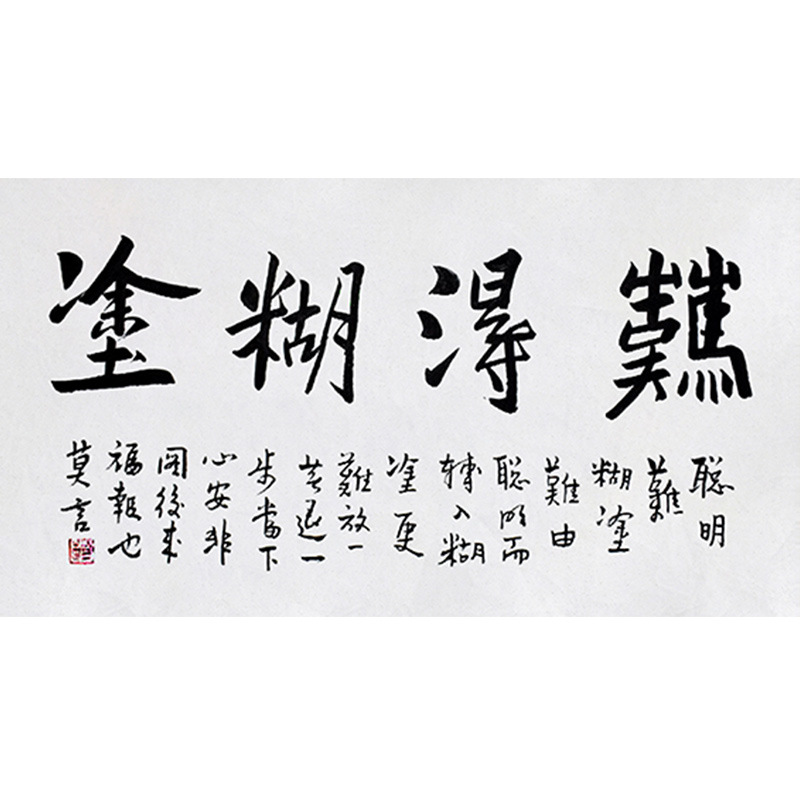 難得糊塗
聪明
難
糊塗
難由
聪明而
轉入糊
塗更
難放一
著退一
步當下
心安非
圖後来
福報也
莫言